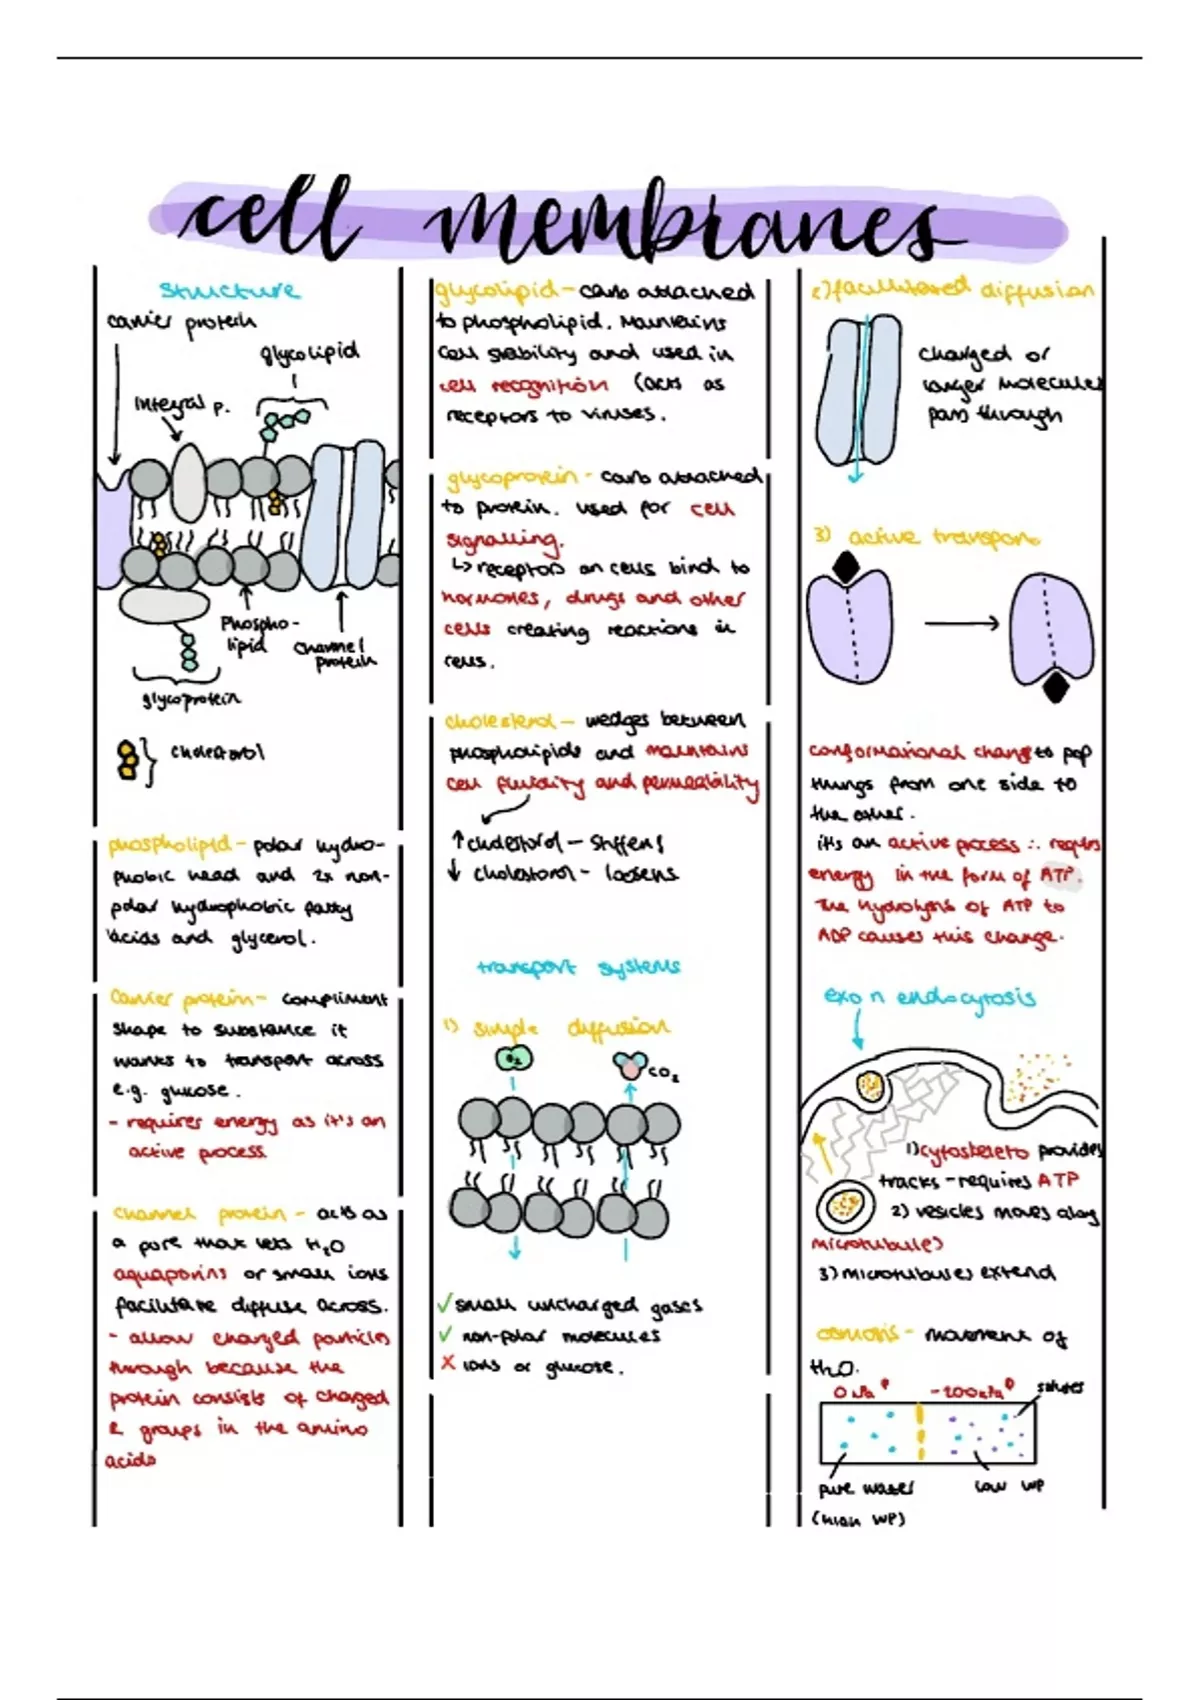 cell membranes
structure
carrier protein
glycolipid
Integral p.
Phospho-
lipid
channel
protein
glycoprotein
cholestorol
phospholipid - polar hydro-
phobic head and 2x non-
polar hydrophobic fatty
acids and glycerol.
Carrier protein - compliment
shape to substance it
wants to transport across
e.g. glucose.
- requires energy as it's an
active process
channel protein - acts as
a pore that lets H2O
aquaporins or small ions
facilitate diffuse across.
- allow charged particles
through because the
protein consists of charged
R groups in the amino
acids
glycolipid - carb attached
to phospholipid. Maintains
cell stability and used in
cell recognition (acts as
receptors to viruses.
glycoprotein - carb attached
to protein. used for cell
signalling.
↳ receptors on cells bind to
hormones, drugs and other
cells creating reactions in
cells.
cholesterol - wedges between
phospholipids and maintains
cell fluidity and permeability
↑ cholestorol - stiffens
↓ cholestorol - loosens
transport systems
1) simple diffusion
O2
CO2
✓ small uncharged gases
✓ non-polar molecules
X ions or glucose.
2) facilitated diffusion
charged or
larger molecules
pass through
3) active transport
conformational change to pop
things from one side to
the other.
it's an active process ∴ requires
energy in the form of ATP.
The hydrolysis of ATP to
ADP causes this change.
exo n endocytosis
1) cytoskeleto provides
tracks - requires ATP
2) vesicles moves along
microtubules
3) microtubules extend
osmosis - movement of
H2O.
0 kPa
-200kPa
solutes
pure water
(high WP)
low WP